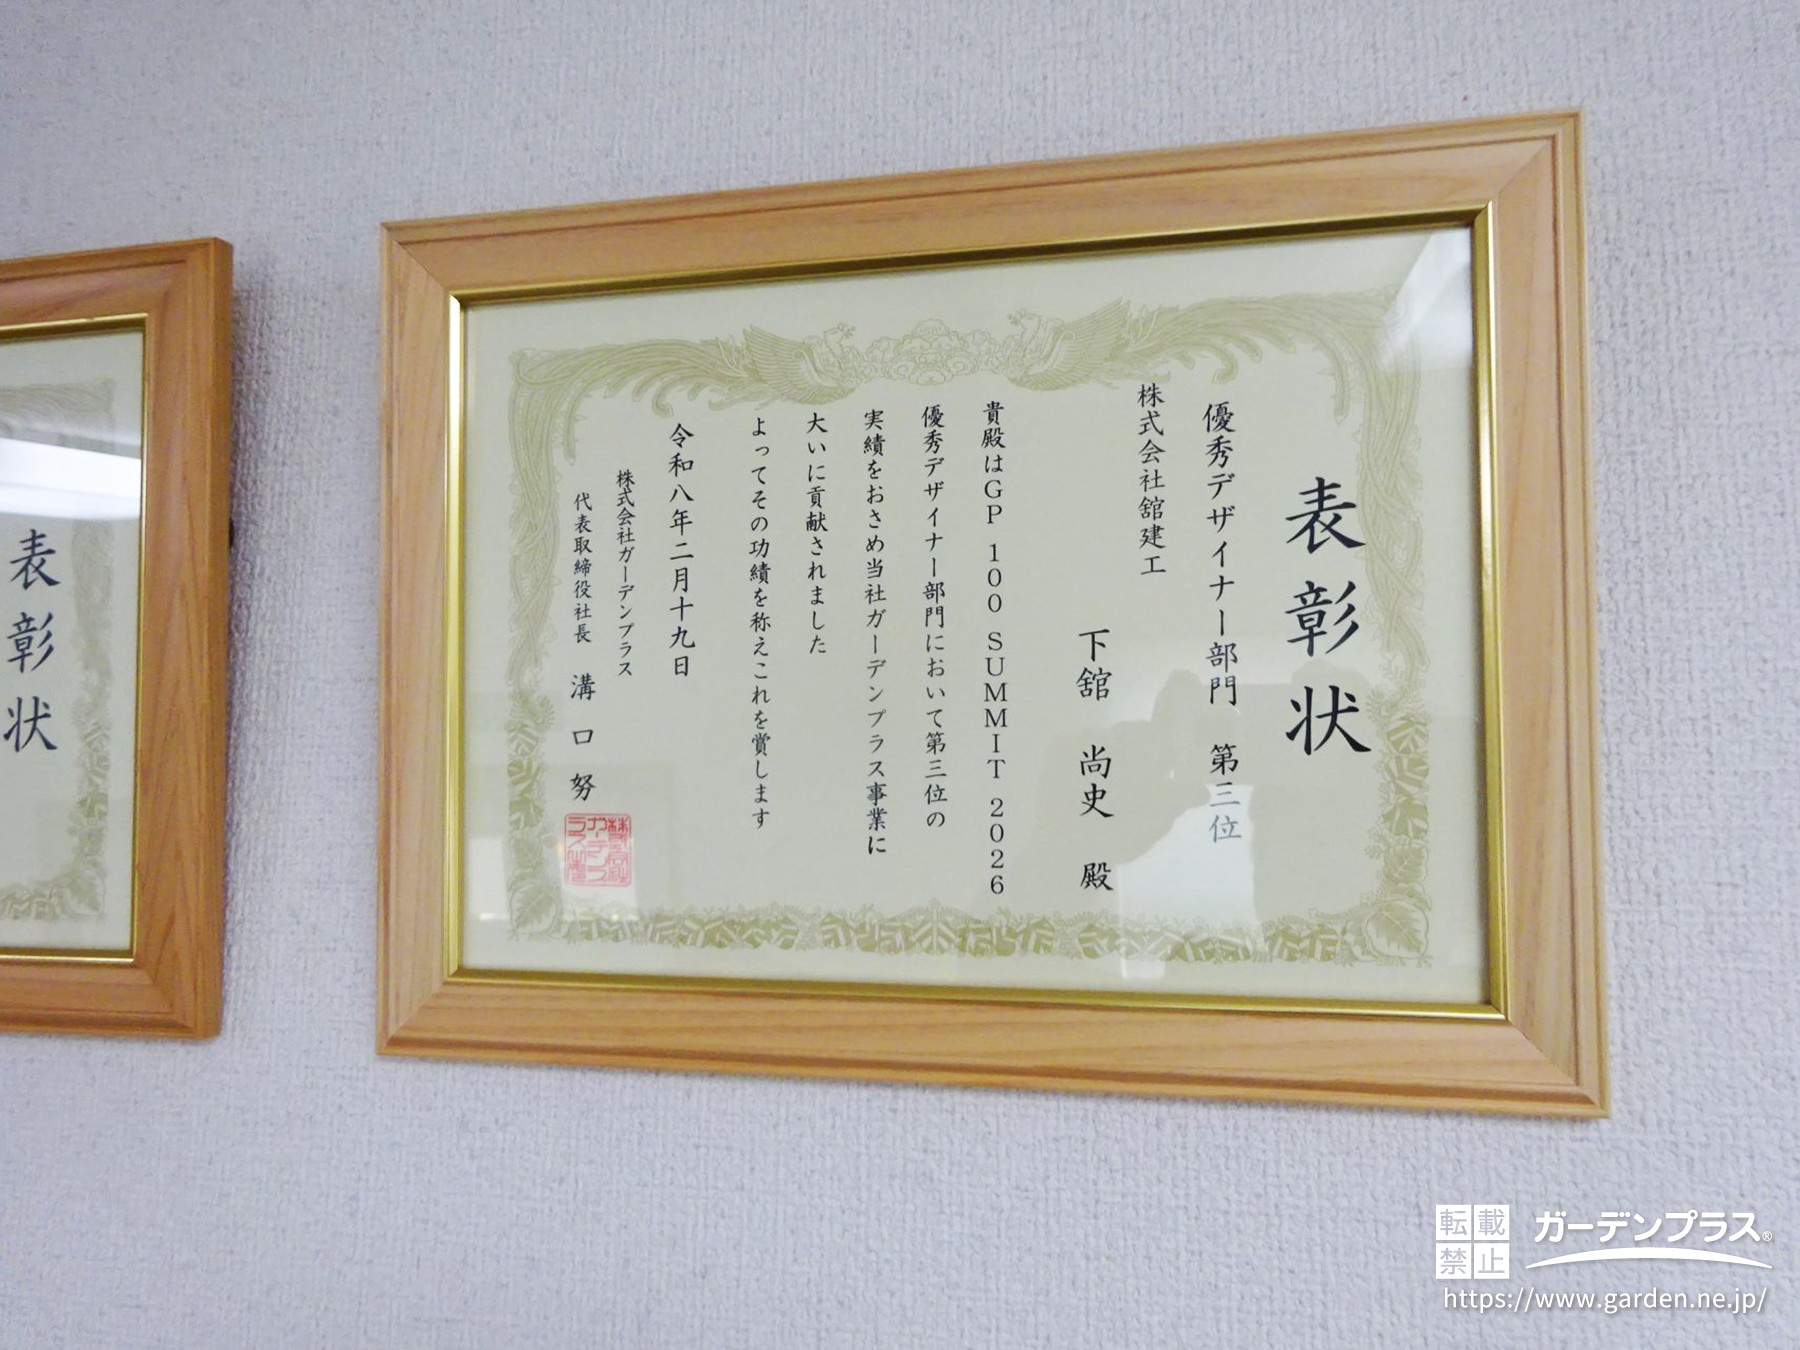 表彰状
優秀デザイナー部門 第三位
株式会社舘建工
下舘 尚史 殿
貴殿はGP 100 SUMMIT 2026
優秀デザイナー部門において第三位の
実績をおさめ当社ガーデンプラス事業に
大いに貢献されました
よってその功績を称えこれを賞します
令和八年二月十九日
株式会社ガーデンプラス
代表取締役社長 溝口努
表彰状
転載
禁止
ガーデンプラス®
https://www.garden.ne.jp/